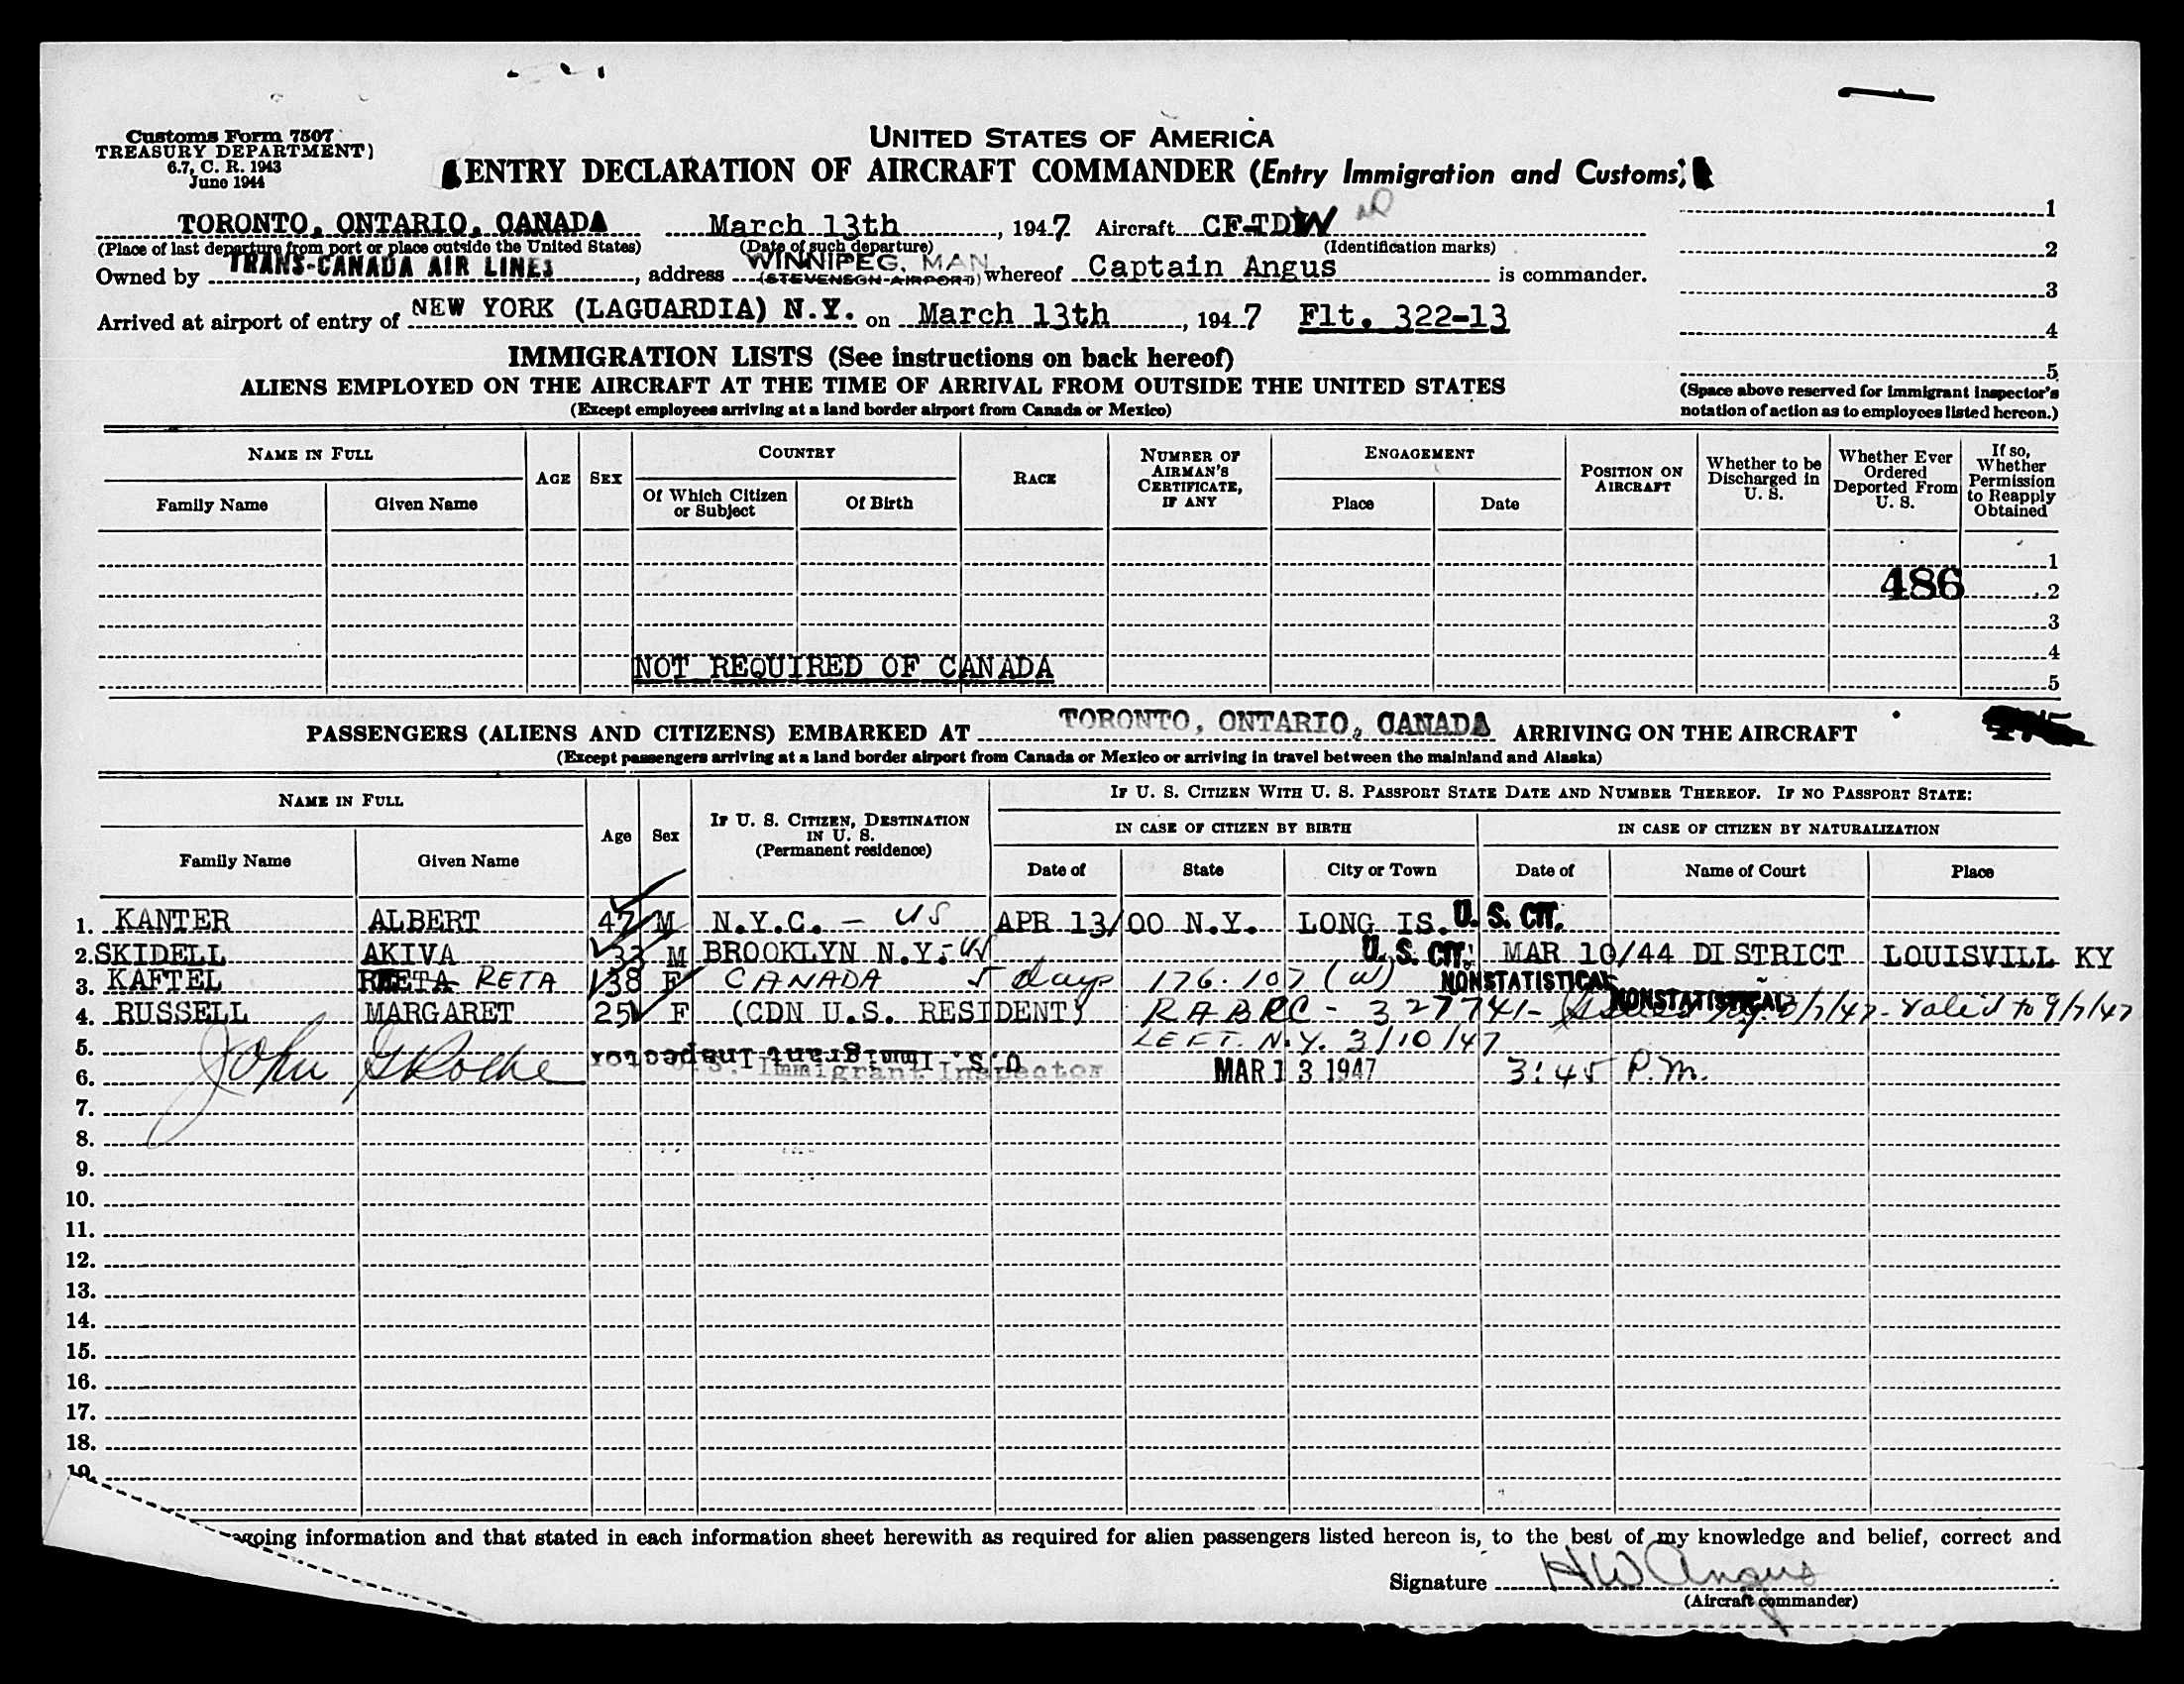 Customs Form 7507
TREASURY DEPARTMENT)
6.7, C. R. 1943
June 1944
UNITED STATES OF AMERICA
ENTRY DECLARATION OF AIRCRAFT COMMANDER (Entry Immigration and Customs)
TORONTO, ONTARIO, CANADA March 13th, 1947 Aircraft CF-TDW
(Place of last departure from port or place outside the United States) (Date of such departure) (Identification marks)
Owned by TRANS-CANADA AIR LINES, address WINNIPEG, MAN (STEVENSON AIRPORT) whereof Captain Angus is commander.
Arrived at airport of entry of NEW YORK (LAGUARDIA) N.Y. on March 13th, 1947 Flt. 322-13
1
2
3
4
5
(Space above reserved for immigrant inspector's
notation of action as to employees listed hereon.)
IMMIGRATION LISTS (See instructions on back hereof)
ALIENS EMPLOYED ON THE AIRCRAFT AT THE TIME OF ARRIVAL FROM OUTSIDE THE UNITED STATES
(Except employees arriving at a land border airport from Canada or Mexico)
NAME IN FULL
Family Name Given Name
AGE SEX
COUNTRY
Of Which Citizen or Subject Of Birth
RACE
NUMBER OF AIRMAN'S CERTIFICATE, IF ANY
ENGAGEMENT
Place Date
POSITION ON AIRCRAFT
Whether to be Discharged in U. S.
Whether Ever Ordered Deported From U. S.
If so, Whether Permission to Reapply Obtained
1
486 2
3
4
NOT REQUIRED OF CANADA 5
PASSENGERS (ALIENS AND CITIZENS) EMBARKED AT TORONTO, ONTARIO, CANADA ARRIVING ON THE AIRCRAFT
(Except passengers arriving at a land border airport from Canada or Mexico or arriving in travel between the mainland and Alaska)
NAME IN FULL
Family Name Given Name
Age Sex
IF U. S. CITIZEN, DESTINATION IN U. S. (Permanent residence)
IF U. S. CITIZEN WITH U. S. PASSPORT STATE DATE AND NUMBER THEREOF. IF NO PASSPORT STATE:
IN CASE OF CITIZEN BY BIRTH IN CASE OF CITIZEN BY NATURALIZATION
Date of State City or Town Date of Name of Court Place
1. KANTER ALBERT 47 M N.Y.C. - US APR 13/00 N.Y. LONG IS. U. S. CIT.
2. SKIDELL AKIVA 33 M BROOKLYN N.Y. - US U. S. CIT. MAR 10/44 DISTRICT LOUISVILL KY
3. KAFTEL REETA RETA 38 F CANADA 5 days 176.107 (W) NONSTATISTICAL
4. RUSSELL MARGARET 25 F (CDN U.S. RESIDENT) RABRC - 327741 - NONSTATISTICAL valid to 9/7/47
LEFT. N.Y. 3/10/47
5. U.S. Immigrant Inspector
6. John G Roche U.S. Immigrant Inspector MAR 13 1947 3:45 P.m.
7.
8.
9.
10.
11.
12.
13.
14.
15.
16.
17.
18.
19.
going information and that stated in each information sheet herewith as required for alien passengers listed hereon is, to the best of my knowledge and belief, correct and
Signature HW Angus
(Aircraft commander)